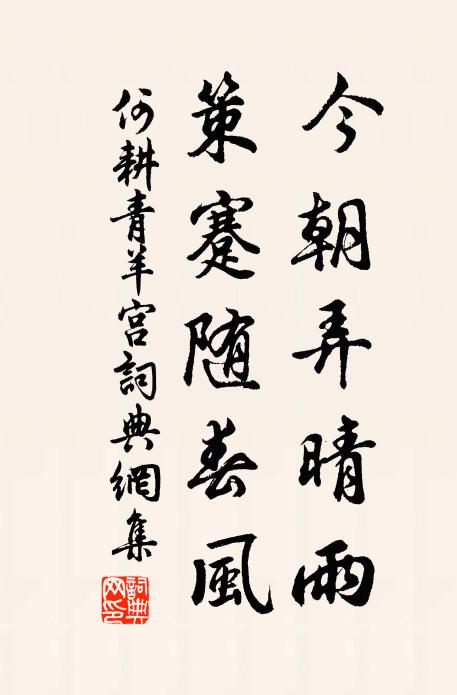 今朝弄晴雨
策蹇随春風
何耕青羊宮詞典網集
詞典網印